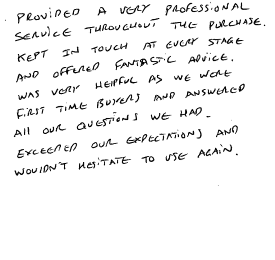 PROVIDED A VERY PROFESSIONAL
SERVICE THROUGHOUT THE PURCHASE.
KEPT IN TOUCH AT EVERY STAGE
AND OFFERED FANTASTIC ADVICE.
WAS VERY HELPFUL AS WE WERE
FIRST TIME BUYERS AND ANSWERED
All OUR QUESTIONS WE HAD.
EXCEEDED OUR EXPECTATIONS AND
WOULDN'T HESITATE TO USE AGAIN.